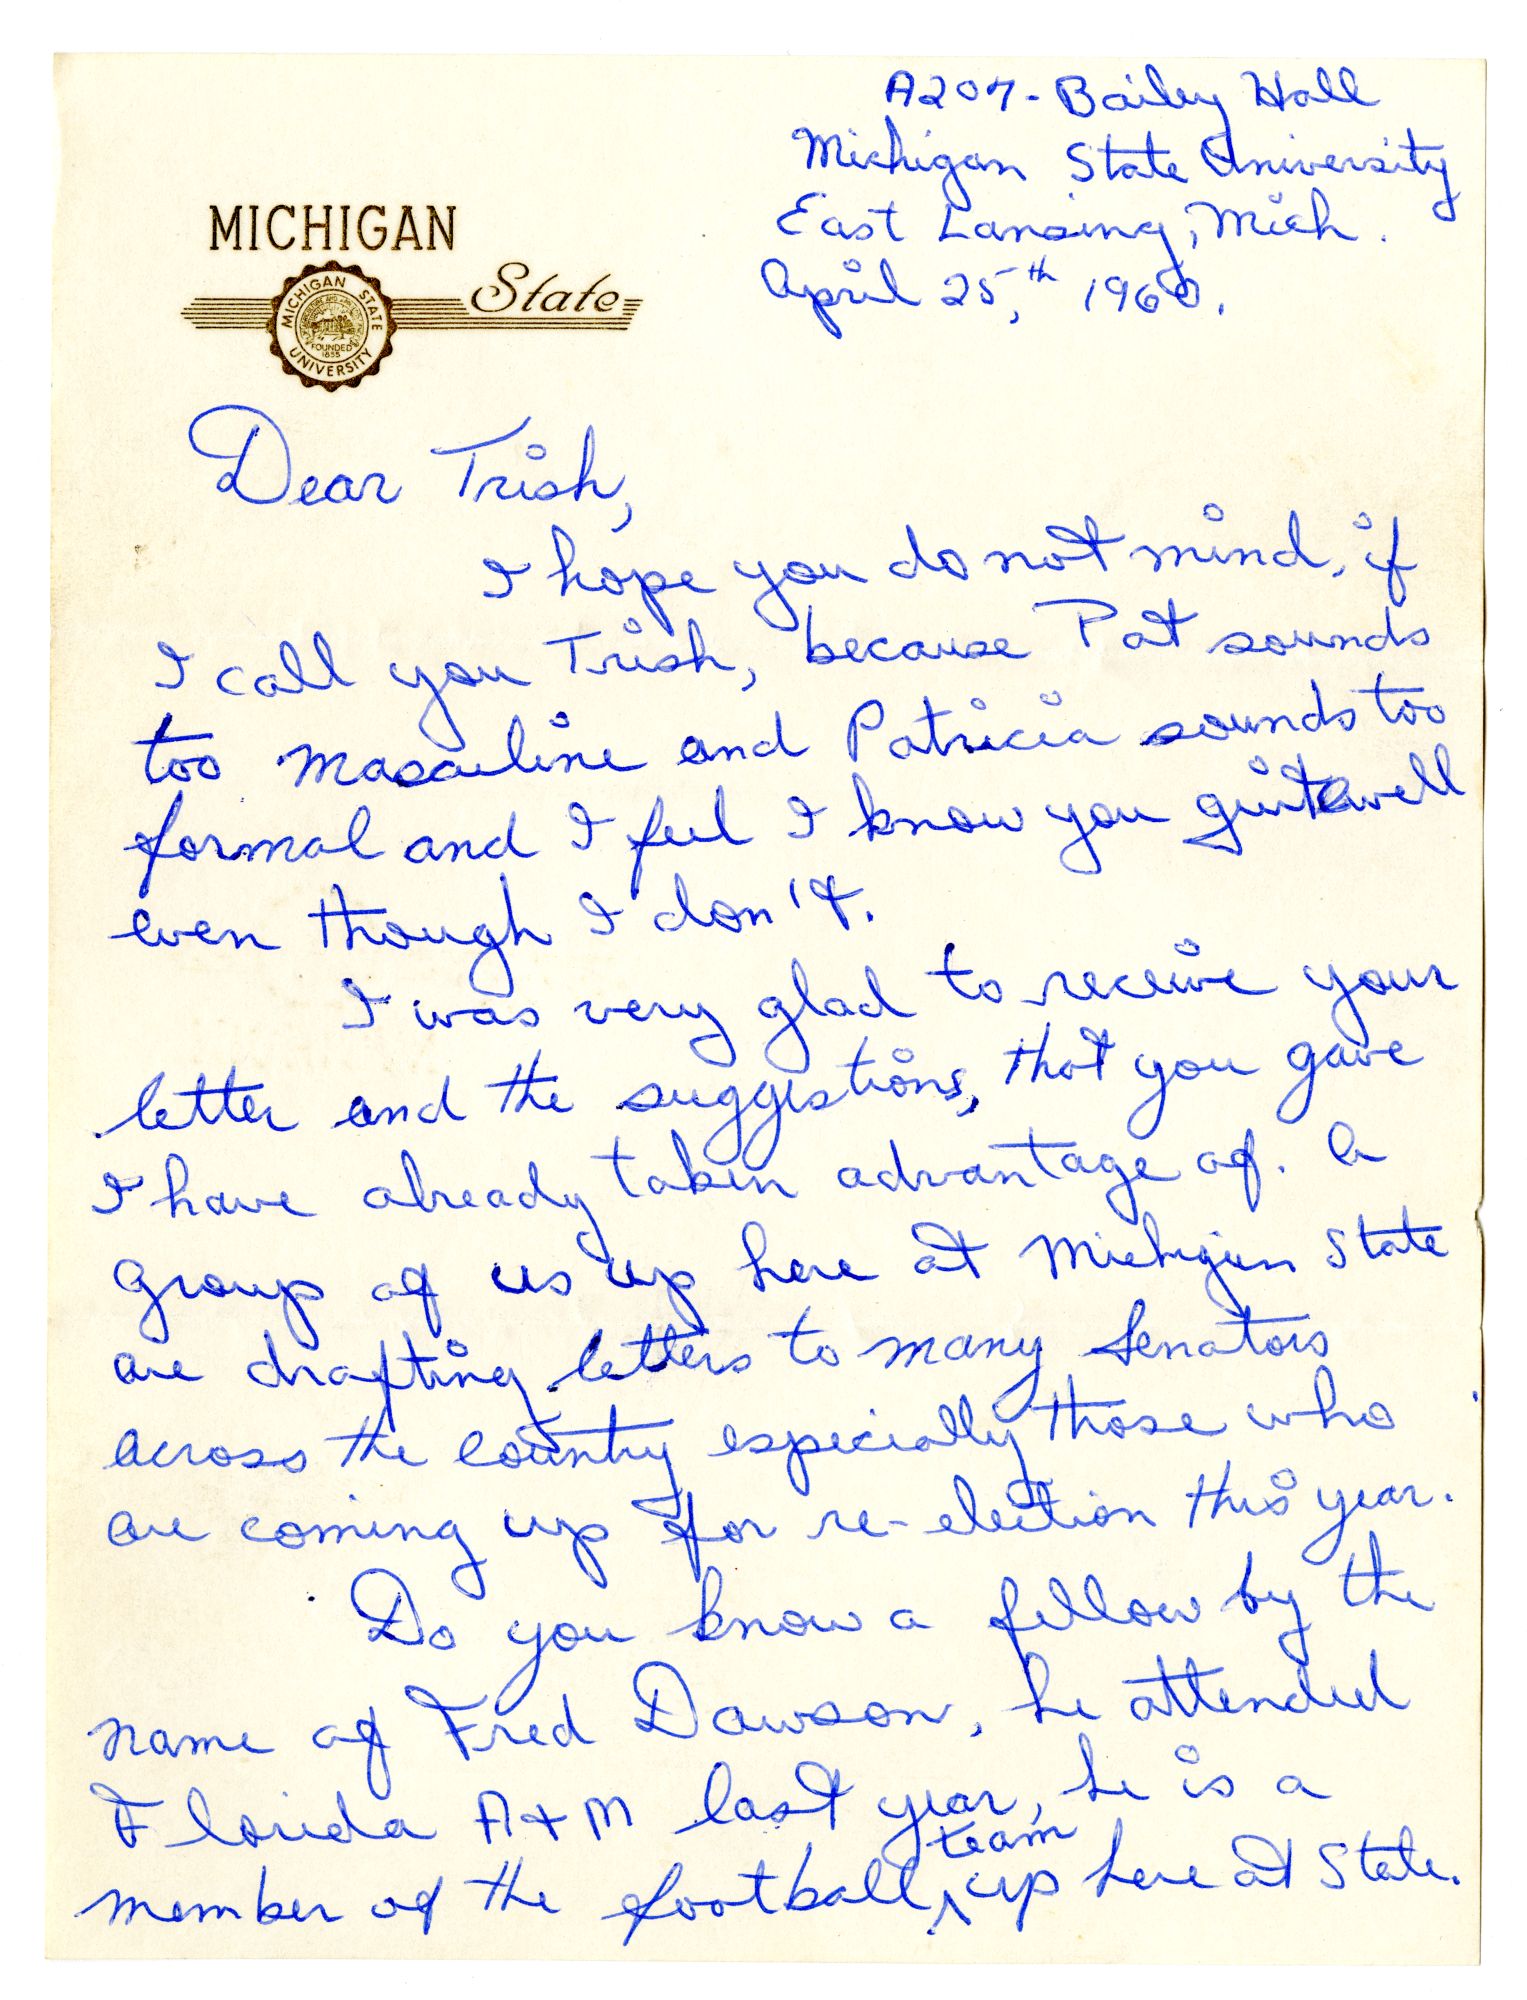 A207- Bailey Hall
Michigan State University
East Lansing, Mich.
April 25,th 1960.
MICHIGAN
State
MICHIGAN STATE UNIVERSITY
FOUNDED
1855
Dear Trish,
I hope you do not mind, if
I call you Trish, because Pat sounds
too masculine and Patricia sounds too
formal and I feel I know you quite well
even though I don't.
I was very glad to receive your
letter and the suggestions, that you gave
I have already taken advantage of. A
group of us up here at Michigan State
are drafting letters to many Senators
across the country especially those who
are coming up for re-election this year.
Do you know a fellow by the
name of Fred Dawson, he attended
Florida A+M last year, he is a
team
member of the football ^ up here at State.